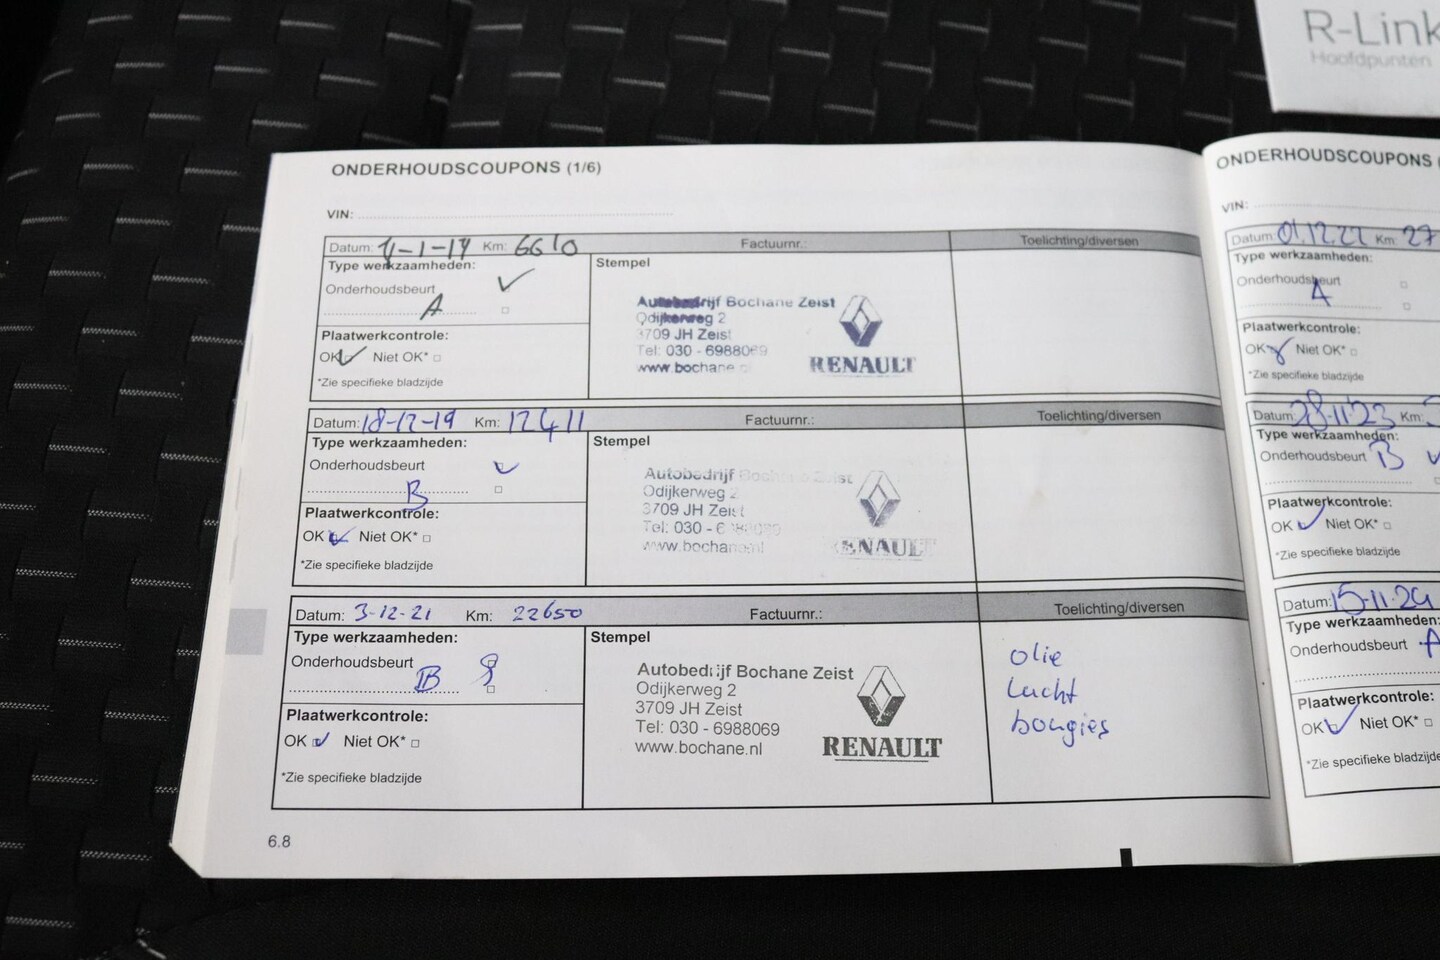 R-Link
Hoofdpunten
ONDERHOUDSCOUPONS (1/6)
VIN:
Datum: Km: 6610 Factuurnr.: Toelichting/diversen
Type werkzaamheden: Stempel
Onderhoudsbeurt
A
Plaatwerkcontrole:
OK Niet OK*
*Zie specifieke bladzijde
Autobedrijf Bochane Zeist
Odijkerweg 2
3709 JH Zeist
Tel: 030 - 6988069
www.bochane
RENAULT
Datum: 18-12-19 Km: 12411 Factuurnr.: Toelichting/diversen
Type werkzaamheden: Stempel
Onderhoudsbeurt
B
Plaatwerkcontrole:
OK Niet OK*
*Zie specifieke bladzijde
Autobedrijf Bochane Zeist
Odijkerweg 2
3709 JH Zeist
Tel: 030 - 6988069
www.bochane.nl
RENAULT
Datum: 3-12-21 Km: 22650 Factuurnr.: Toelichting/diversen
Type werkzaamheden: Stempel
Onderhoudsbeurt
B
Plaatwerkcontrole:
OK Niet OK*
*Zie specifieke bladzijde
Autobedrijf Bochane Zeist
Odijkerweg 2
3709 JH Zeist
Tel: 030 - 6988069
www.bochane.nl
RENAULT
olie
lucht
bougies
6.8
ONDERHOUDSCOUPONS (
VIN:
Datum: 01.12.22 Km: 27
Type werkzaamheden:
Onderhoudsbeurt
A
Plaatwerkcontrole:
OK Niet OK*
*Zie specifieke bladzijde
Datum: 28-11-23 Km:
Type werkzaamheden:
Onderhoudsbeurt B
Plaatwerkcontrole:
OK Niet OK*
*Zie specifieke bladzijde
Datum: 15-11-24
Type werkzaamheden:
Onderhoudsbeurt A
Plaatwerkcontrole:
OK Niet OK*
*Zie specifieke bladzijde